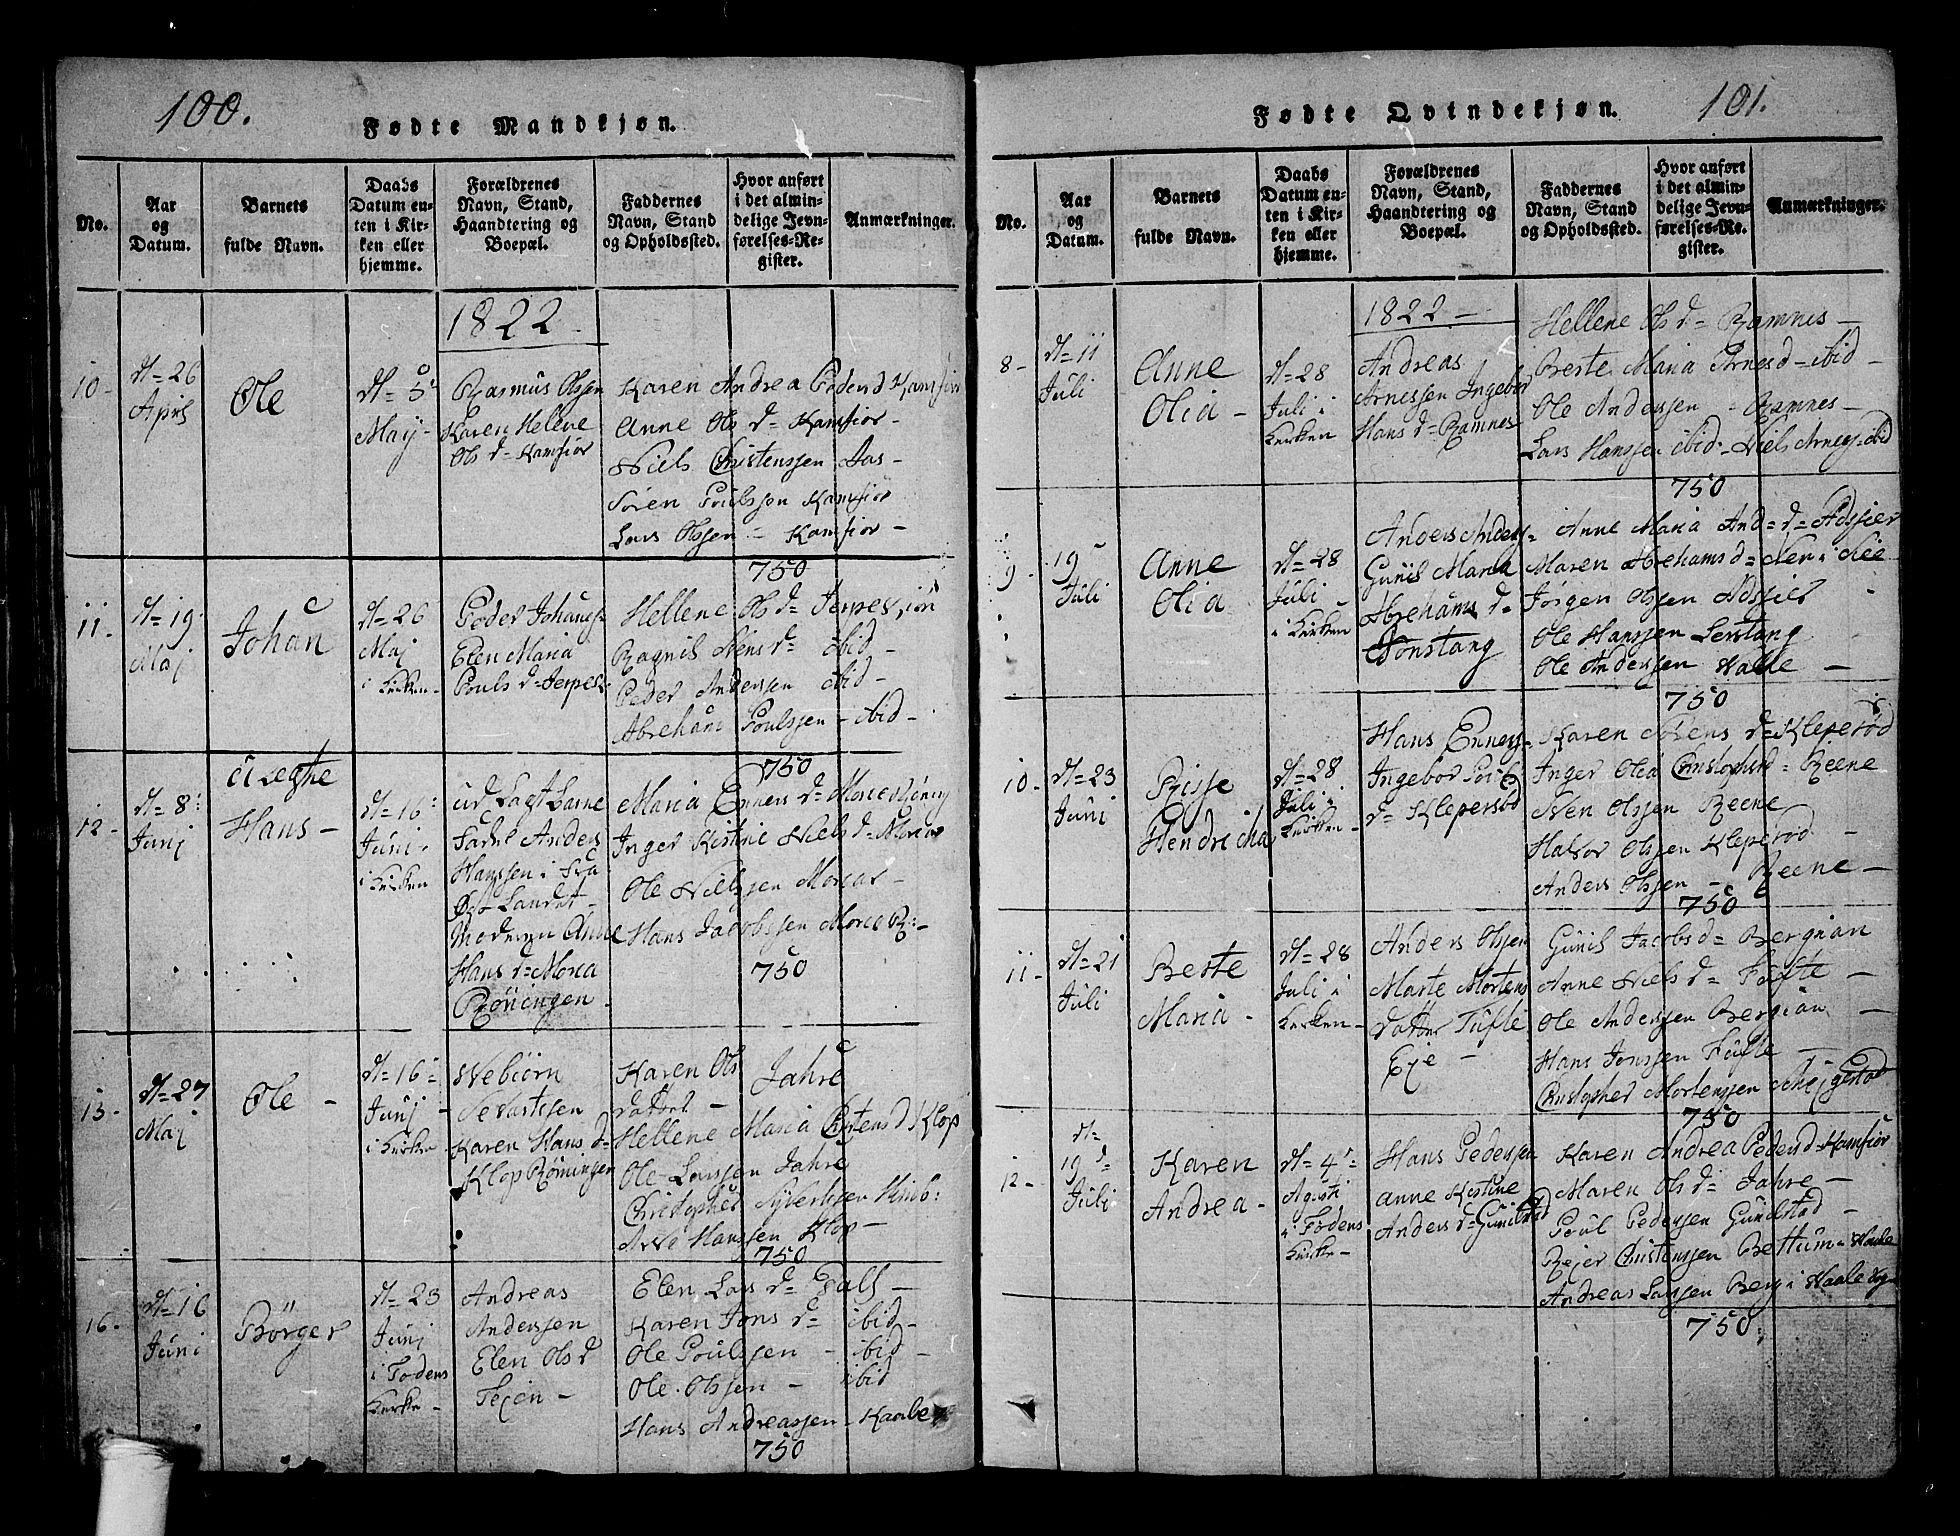 100.
Fødte Mandkjøn.
No.
Aar
og
Datum.
Barnets
fulde Navn.
Daabs
Datum en-
ten i Kir-
ken eller
hjemme.
Forældrenes
Navn, Stand,
Haandtering og
Boepæl.
Faddernes
Navn, Stand
og Opholdssted.
Hvor anført
i det almin-
delige Jevn-
førelses-Re-
gister.
Anmærkninger.
1822 -
10 -
d= 26
April
Ole
d= 5
Maij -
Rasmus Olssen
Karen Helene
Ols d= Kamfiør
Karen Andrea Peders d Kamfiør
Anne Ols d= Kamfiør -
Niels Christenssen Aas -
Søren Poulssen Kamfiør
Lars Olssen - Kamfiør -
750
11 -
d= 19
Maj
Johan
d= 26
Maj
i Kirken -
Peder Johans
Elen Maria
Pouls d= Jerpes
Hellene Ols d= Jerpes
Ragnil d= ibid -
Peder Anderssen ibid -
Abreham Poulssen - ibid -
750
12 -
d= 8
Junj
Uægthe
Hans -
d= 16
Junj -
i Kirken
Anders
Hanssen i Fra
Landet -
Moderen Anne
Hans d= Morca
Røningen -
Maria Enners d= Morca
Inger Kistine Niels d= Morca
Ole Nielssen Morcar -
Hans Jacobssen Morca R: -
750
13 -
d= 27
Maj
Ole -
d= 16
Junj -
i Kirken -
Nebiørn
Sevartssen
Karen Hans d=
Klop Røningen
Karen Ols Jahre
datter -
Hellene Maria d Klop
Ole Larssen Jahre
Christopher
Arve Hanssen Klop -
750
16 -
d= 16
Juni
Børger
d= 23
Junj
i Fodens
Kirke -
Andreas
Anderssen
Elen Ols d
Tejen -
Elen Lars d=
Karen Jons d= ibid -
Ole Poulssen - ibid -
Ole Olssen - ibid
Hans Andreassen -
750
101.
Fødte Qvindekjøn.
No.
Aar
og
Datum.
Barnets
fulde Navn.
Daabs
Datum en-
ten i Kir-
ken eller
hjemme.
Forældrenes
Navn, Stand,
Haandtering og
Boepæl.
Faddernes
Navn, Stand
og Opholdssted.
Hvor anført
i det almin-
delige Jevn-
førelses-Re-
gister.
Anmærkninger.
1822 -
8 -
d= 11
Juli
Anne
Olia -
d= 28
Juli i
Kirken
Andreas
Arnessen Ingebor
Hans d= Ramnes
Hellene Ols d= Ramnes -
Berte Maria Arnes d= ibid -
Ole Anderssen - Ramnes -
Lars Hanssen ibid - Niels Arness ibid
750
9 -
19
Juli
Anne
Olia
d= 28
Juli -
i Kirken
Anders Anders
Gunil Maria
Abrehams d=
Anne Maria And= d= Adssier
Maren Abrehams d=
Jørgen Olssen Adssier -
Ole Hanssen Lerstang
Ole Anderssen Valle -
750
10 -
d= 23
Juni
Risse
Hendricha
d= 28
Juli i
Kirken -
Hans Enners
Ingebor
d= Klepersød
Karen d= Kleperød
Inger Olia Christophsd= Reene
Sven Olssen Reene
Halvor Olssen Kleperød -
Anders Olssen - Reene -
750
11 -
d= 21
Juli
Berte
Maria -
d= 28
Juli i
Kirken -
Anders Olssen
Marte Mortens
datter Tufte
Eje -
Gunil Jacobs d= Bergnan
Anne Niels d= Tufte -
Ole Anderssen Bergnan -
Hans Jonssen Tufte -
Christopher Mortenssen
750
12 -
d=
19 d=
Juli
Karen
Andrea -
d= 4
Agusti
i Fodens
Kirke -
Hans Pederssen
Anne Kistine
Anders d= Gunilstad
Karen Andrea Peders d Kamfiør
Maren Ols d= Jahre -
Poul Pederssen Gunilstad -
Rejer Christenssen Bettum - Vaale
Andreas Larssen Berg i Vaale Sogn
750